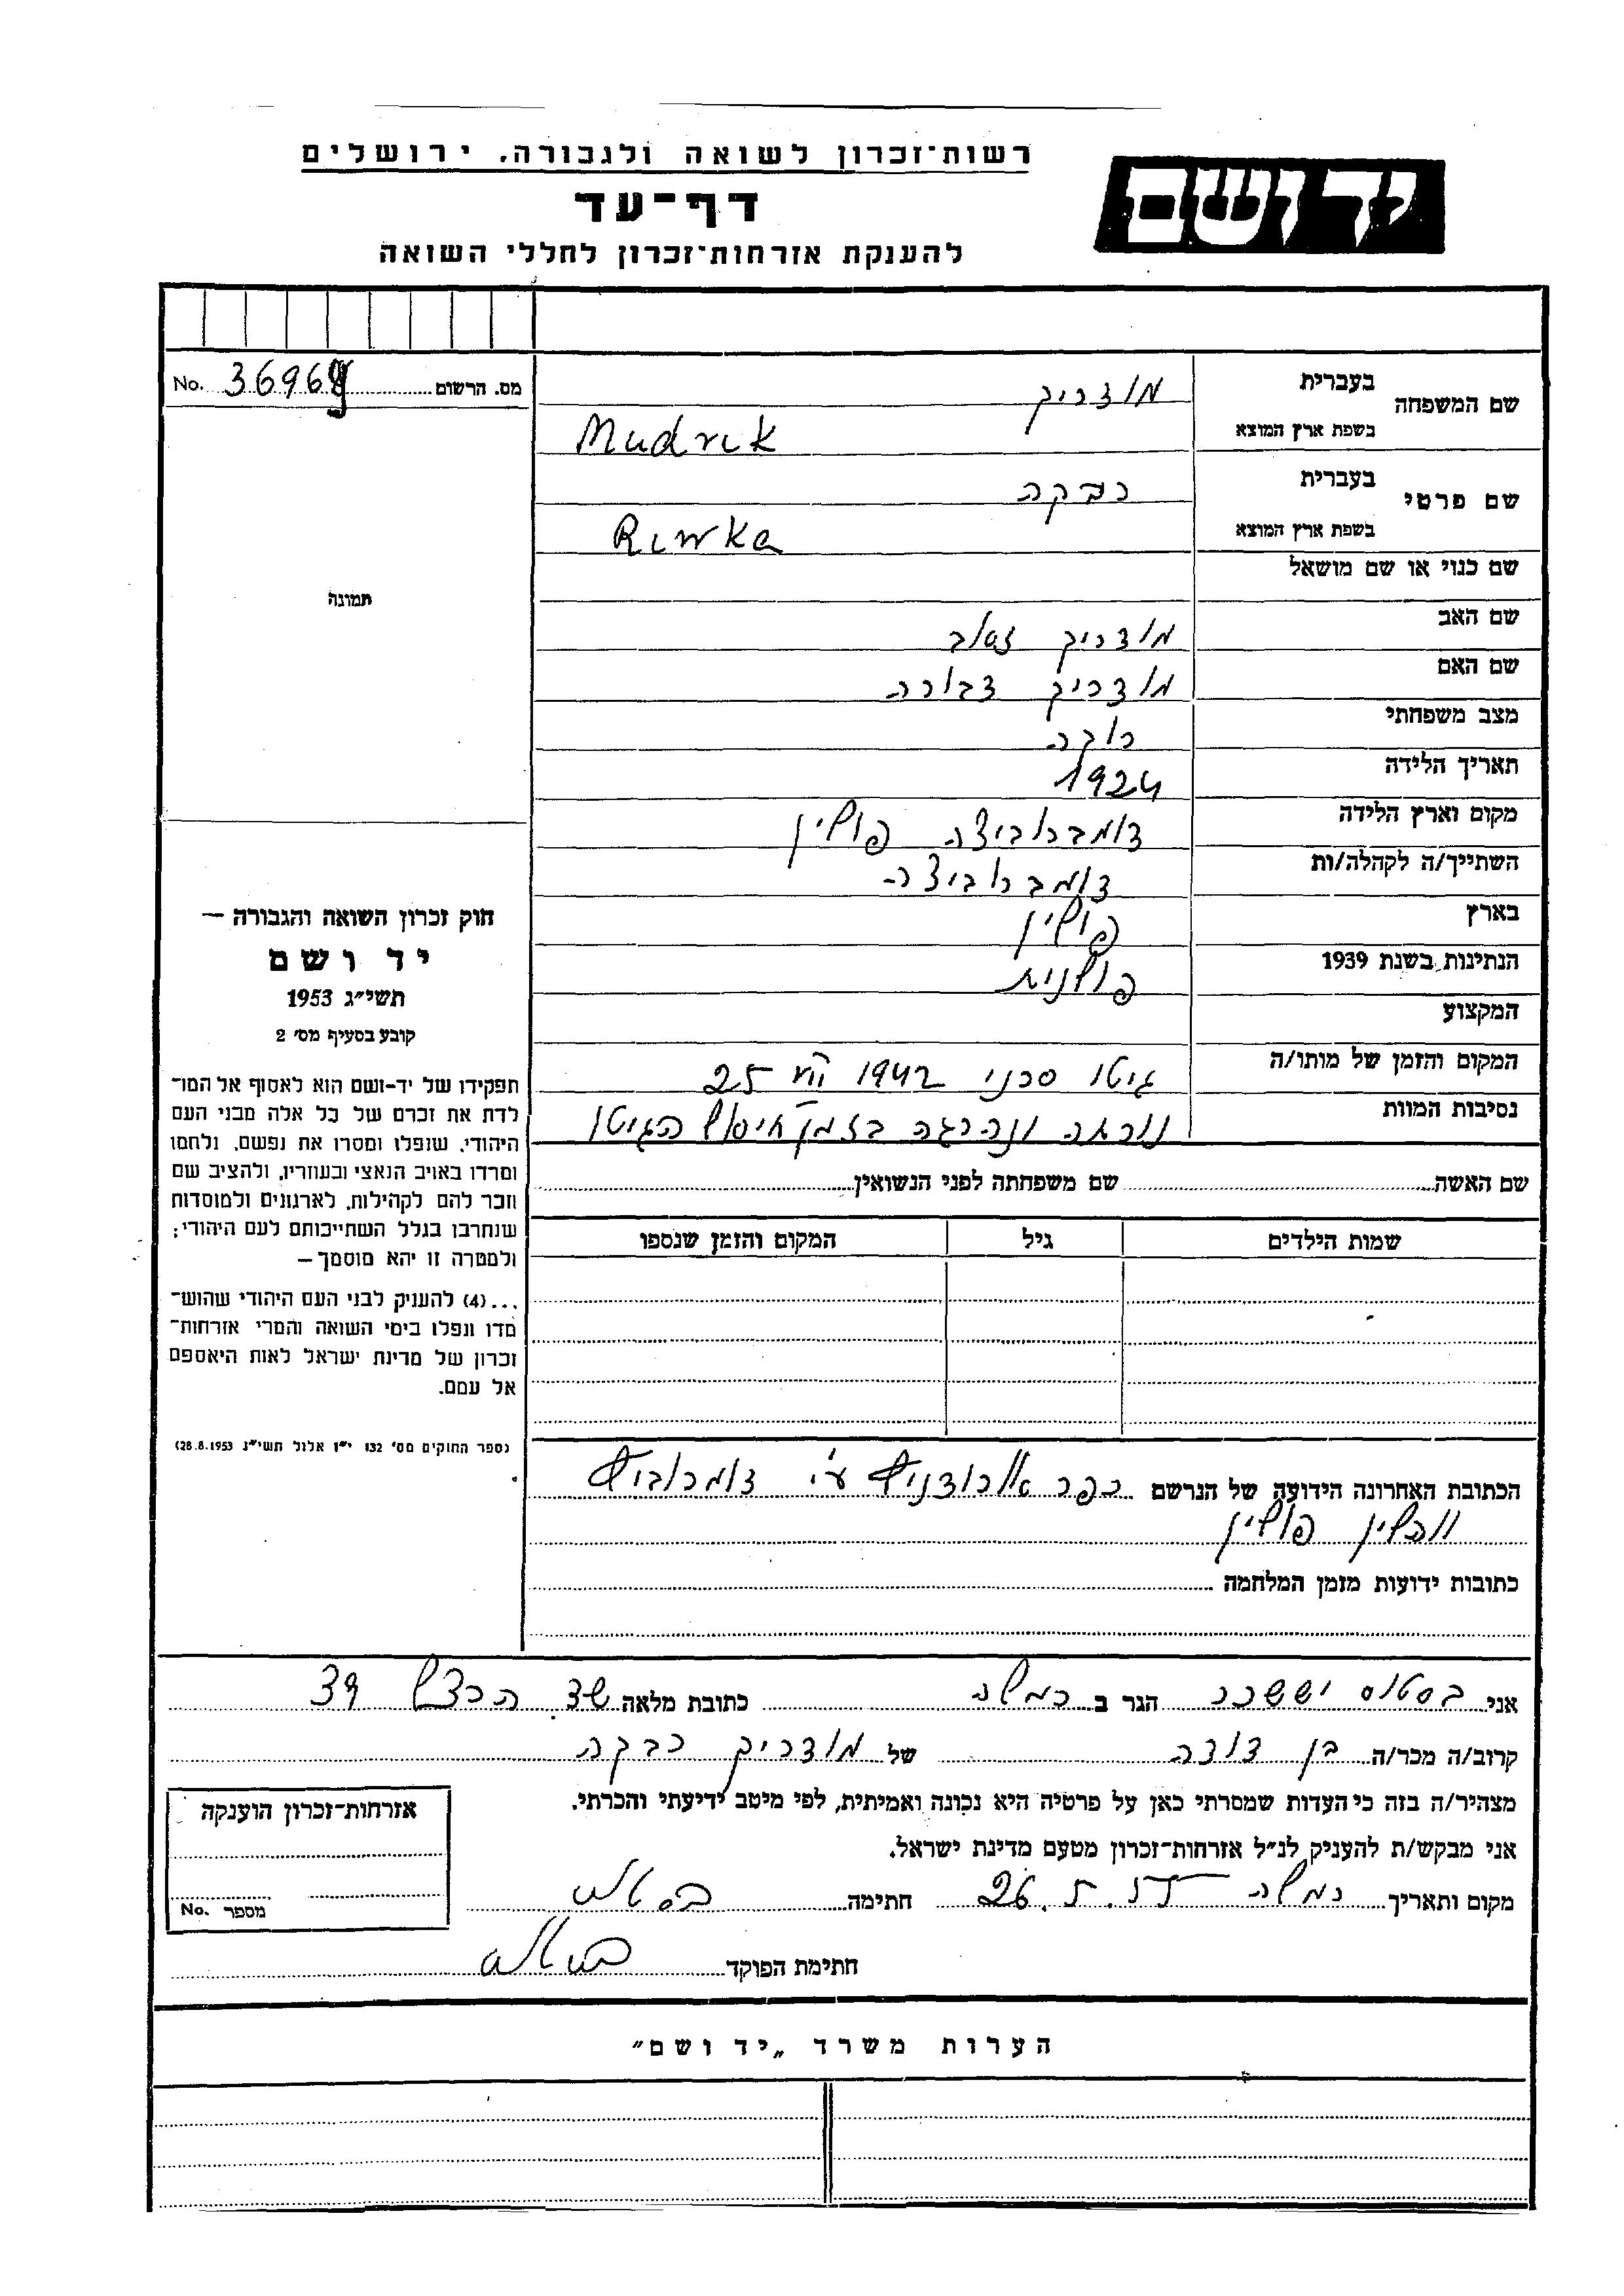 רשות־זכרון לשואה ולגבורה, ירושלים
יד ושם
דף־עד
להענקת אזרחות־זכרון לחללי השואה
מס. הרשום No. 36968
שם המשפחה בעברית מודריק
בשפת ארץ המוצא Mudrik
שם פרטי בעברית רבקה
בשפת ארץ המוצא Riwka
שם כנוי או שם מושאל
תמונה
שם האב מודריק
שם האם מודריק דבורה
מצב משפחתי רוקה
תאריך הלידה 1924
מקום וארץ הלידה דומברוביצה פולין
השתייך/ה לקהלה/ות דומברוביצה
בארץ פולין
הנתינות בשנת 1939 פולנית
המקצוע
המקום והזמן של מותו/ה גיטו סרני 1942 VIII 25
נסיבות המוות נורתה ונהרגה בזמן חיסול הגיטו
שם האשה שם משפחתה לפני הנשואין
שמות הילדים גיל המקום והזמן שנספו
חוק זכרון השואה והגבורה —
יד ושם
תשי״ג 1953
קובע בסעיף מס׳ 2
תפקידו של יד-ושם הוא לאסוף אל המו־
לדת את זכרם של כל אלה מבני העם
היהודי, שנפלו ומסרו את נפשם, נלחמו
ומרדו באויב הנאצי ובעוזריו, ולהציב שם
וזכר להם לקהילות, לארגונים ולמוסדות
שנחרבו בגלל השתייכותם לעם היהודי;
ולמטרה זו יהא מוסמך —
...(4) להעניק לבני העם היהודי שהוש־
מדו ונפלו בימי השואה והמרי אזרחות־
זכרון של מדינת ישראל לאות היאספם
אל עמם.
(ספר החוקים מס׳ 132 י״ז אלול תשי״ג 28.8.1953)
הכתובת האחרונה הידועה של הנרשם כפר ע״י
ווהלין פולין
כתובות ידועות מזמן המלחמה
אני בסטוס יששכר הגר ב רמלה כתובת מלאה שד הרצל 39
קרוב/ה מכר/ה בן דודה של מודריק רבקה
מצהיר/ה בזה כי העדות שמסרתי כאן על פרטיה היא נכונה ואמיתית, לפי מיטב ידיעתי והכרתי.
אני מבקש/ת להעניק לנ״ל אזרחות־זכרון מטעם מדינת ישראל.
מקום ותאריך רמלה חתימה
חתימת הפוקד
אזרחות־זכרון הוענקה
מספר No.
הערות משרד „יד ושם״